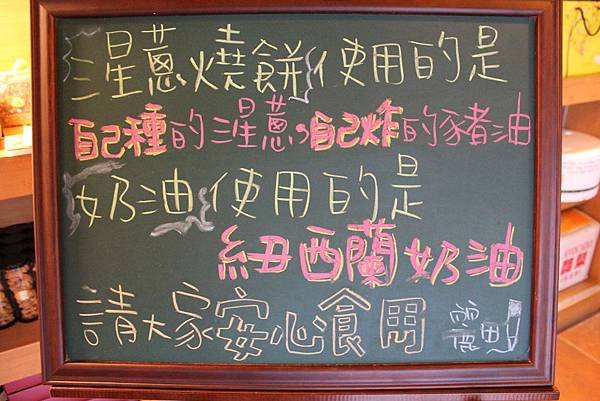 三星蔥燒餅使用的是
自己種的三星蔥,自己炸的豬油
奶油使用的是
紐西蘭奶油
請大家安心食用